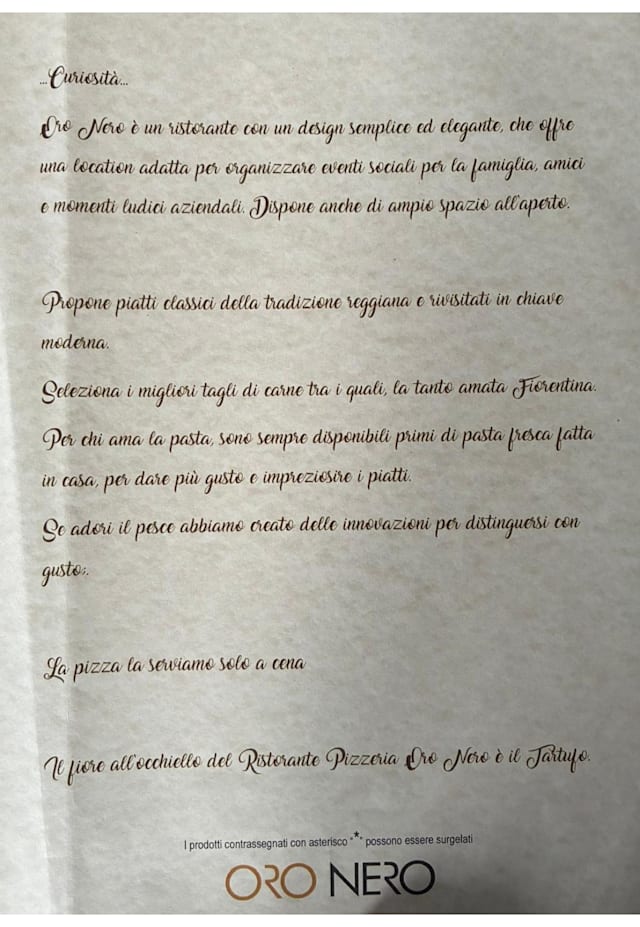 ...Curiosità...
Oro Nero è un ristorante con un design semplice ed elegante, che offre
una location adatta per organizzare eventi sociali per la famiglia, amici
e momenti ludici aziendali. Dispone anche di ampio spazio all'aperto.
Propone piatti classici della tradizione reggiana e rivisitati in chiave
moderna.
Seleziona i migliori tagli di carne tra i quali, la tanto amata Fiorentina.
Per chi ama la pasta, sono sempre disponibili primi di pasta fresca fatta
in casa, per dare più gusto e impreziosire i piatti.
Se adori il pesce abbiamo creato delle innovazioni per distinguersi con
gusto;.
La pizza la serviamo solo a cena
Il fiore all'occhiello del Ristorante Pizzeria Oro Nero è il Tartufo.
I prodotti contrassegnati con asterisco "*" possono essere surgelati
ORO NERO